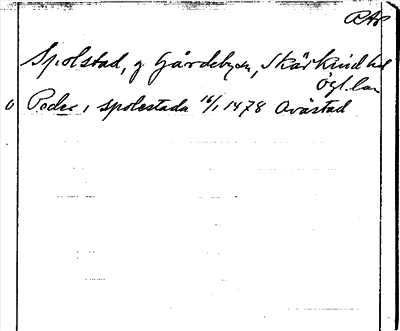 RAp
Spolstad, g Gårdebyn, Skärkind hd
Ögl. län
0 Peder i spolestada 16/1 1478 Avästad